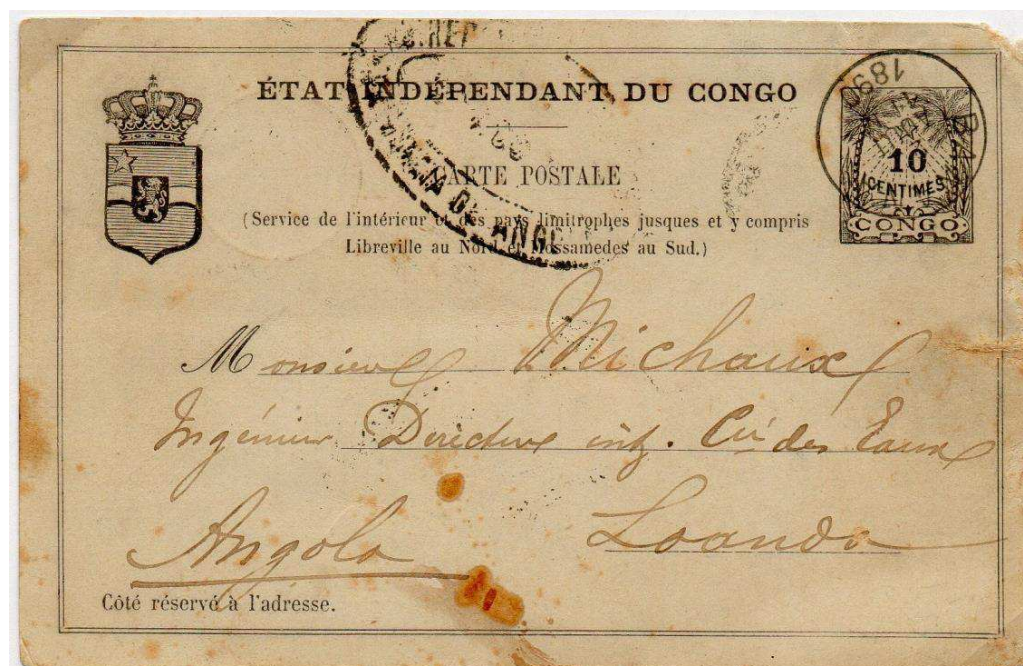 ÉTAT INDÉPENDANT DU CONGO
CARTE POSTALE
(Service de l'intérieur et des pays limitrophes jusques et y compris
Libreville au Nord et Mossamedes au Sud.)
1890
BAN
10
CENTIMES
CONGO
Monsieur Michaux
Ingénieur Directeur Cie des Eaux
Loanda
Angola
Côté réservé à l'adresse.